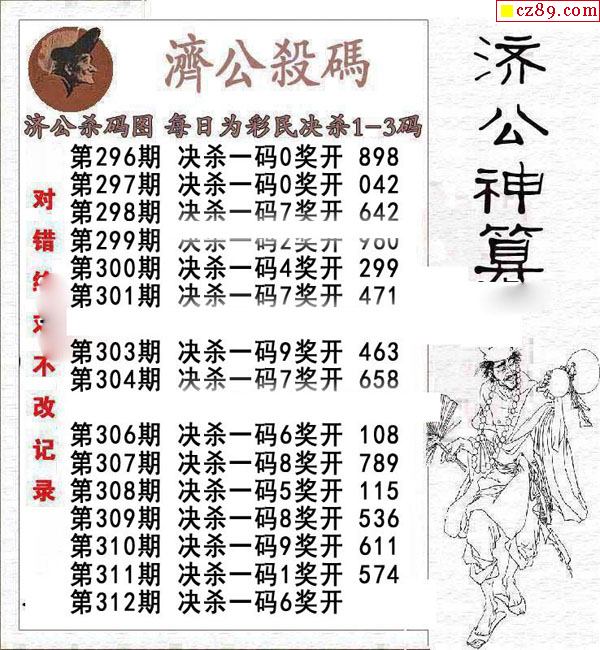 cz89.com
濟公殺碼
济公杀码图 每日为彩民决杀1-3码
第296期 决杀一码0奖开 898
第297期 决杀一码0奖开 042
第298期 决杀一码7奖开 642
第299期 决杀一码2奖开 960
第300期 决杀一码4奖开 299
第301期 决杀一码7奖开 471
第303期 决杀一码9奖开 463
第304期 决杀一码7奖开 658
第306期 决杀一码6奖开 108
第307期 决杀一码8奖开 789
第308期 决杀一码5奖开 115
第309期 决杀一码8奖开 536
第310期 决杀一码9奖开 611
第311期 决杀一码1奖开 574
第312期 决杀一码6奖开
对错 不改记录
济公神算